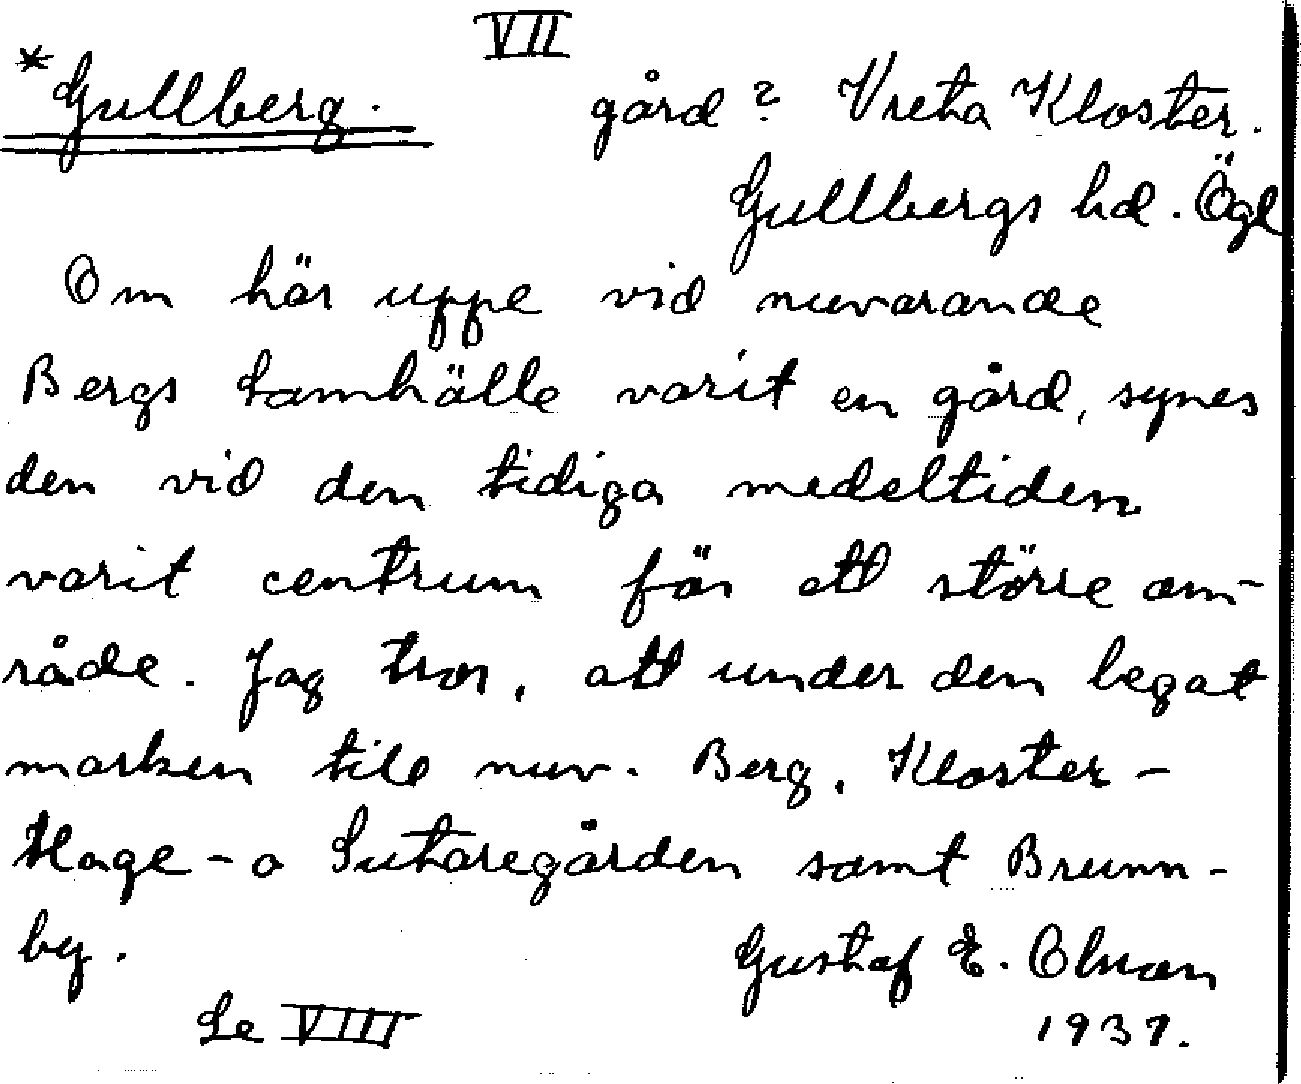 VII
*Gullberg. gård? Vreta Kloster.
Gullbergs hd. Ögl
Om här uppe vid nuvarande
Bergs samhälle varit en gård, synes
den vid den tidiga medeltiden
varit centrum för ett större om-
råde. Jag tror, att under den legat
marken till nuv. Berg, Kloster-
Hage - o Sutaregården samt Brunn-
by.
Gustaf E. Olsson
Se VIII 1937.